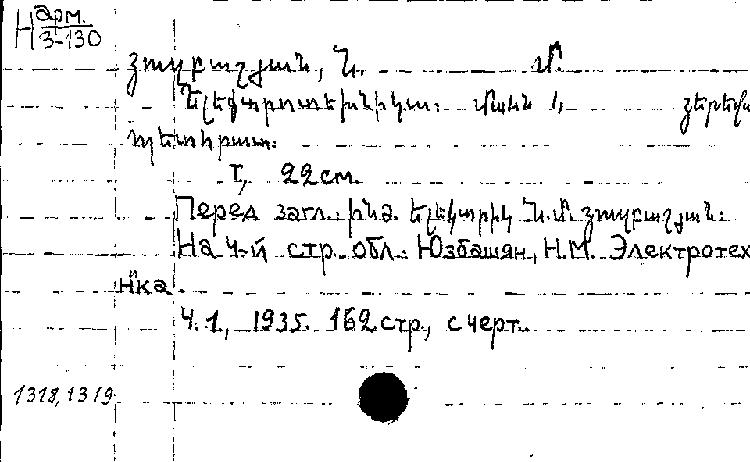 Н арм.
3-130
Յուզբաշյան, Ն. Մ.
Ելեքտրոտեխնիկա. մասն 1,
Պետհրատ.
T, 22 см.
Перед загл. ինժ. Ելեկտրիկ Ն. Մ. Յուզբաշյան.
На 4-й стр. обл.: Юзбашян, Н.М. Электротех
ника.
Ч. 1., 1935. 162 стр., с черт.
1318, 1319